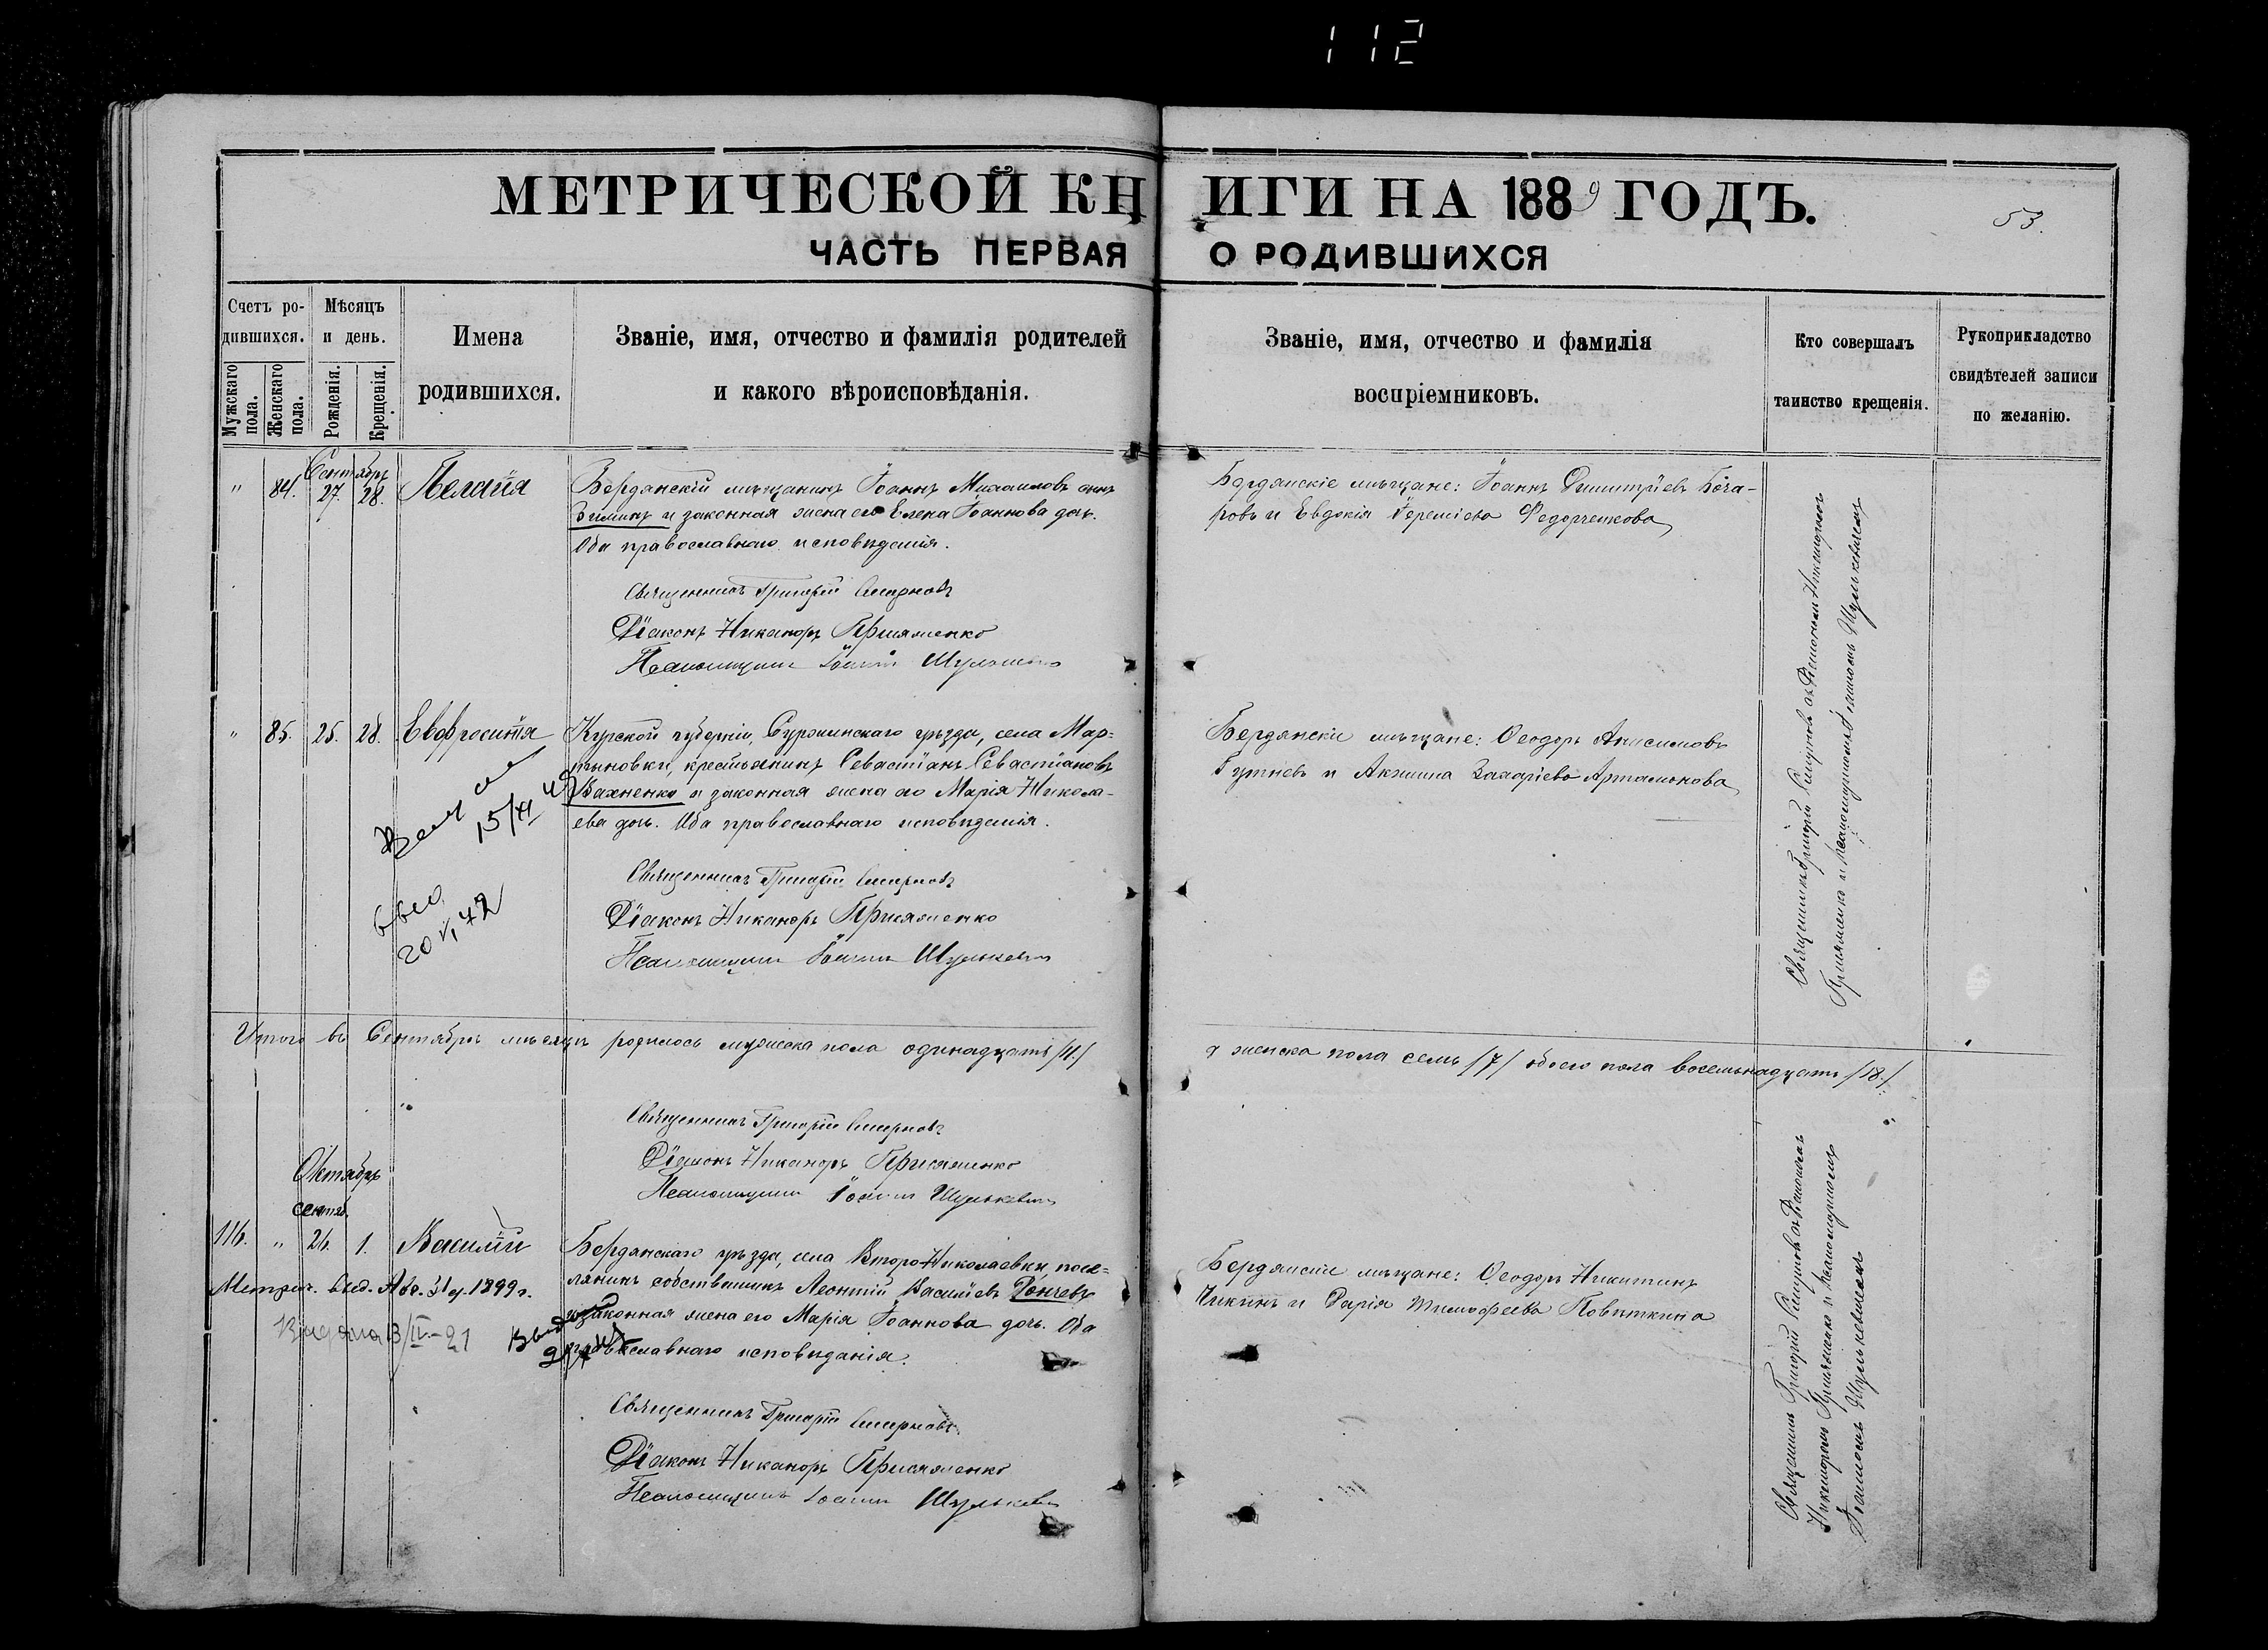 112
МЕТРИЧЕСКОЙ КНИГИ НА 1889 ГОДЪ.
53.
ЧАСТЬ ПЕРВАЯ О РОДИВШИХСЯ
Счетъ ро-
дившихся.
Мужскаго пола.
Женскаго пола.
Мѣсяцъ
и день.
Рожденія.
Крещенія.
Имена
родившихся.
Званіе, имя, отчество и фамилія родителей
и какого вѣроисповѣданія.
Званіе, имя, отчество и фамилія
воспріемниковъ.
Кто совершалъ
таинство крещенія.
Рукоприкладство
свидѣтелей записи
по желанію.
Сентябрь
" 84. 27. 28. Пелагія
Бердянскій мѣщанинъ Іоаннъ Михаиловъ сынъ
Зиминъ и законная жена его Елена Іоаннова дочь.
Оба православнаго исповѣданія.
Священникъ Григорій Смирновъ
Діаконъ Никаноръ Присяженко
Псаломщикъ Іоаннъ Шулькевичъ
Бердянскіе мѣщане: Іоаннъ Димитріевъ Боча-
ровъ и Евдокія Іереміева Федорченкова
Священникъ Григорій Смирновъ съ Діакономъ Никаноромъ
Присяженко и Псаломщикомъ Іоанномъ Шулькевичемъ
" 85. 25. 28. Евфросинія
Курской губерніи, Суджинскаго уѣзда, села Мар-
тыновки, крестьянинъ Севастіанъ Севастіановъ
Вахненко и законная жена его Марія Никола-
ева дочь. Оба православнаго исповѣданія.
15/XI
20 VI 42
Священникъ Григорій Смирновъ
Діаконъ Никаноръ Присяженко
Псаломщикъ Іоаннъ Шулькевичъ
Бердянскіе мѣщане: Ѳеодоръ Анисимовъ
и Акилина Захаріева Артамонова
Итого въ Сентябрѣ мѣсяцѣ родилось мужска пола одинадцать /11./
а женска пола семь /7/ обоего пола восемьнадцать /18./
Священникъ Григорій Смирновъ
Діаконъ Никаноръ Присяженко
Псаломщикъ Іоаннъ Шулькевичъ
Октябрь
сентяб.
116. " 26. 1. Василій
Бердянскаго уѣзда, села Второ-Николаевки, посе-
лянинъ собственникъ Леонтій Василіевъ Гончевъ
и законная жена его Марія Іоаннова дочь. Оба
православнаго исповѣданія.
Метрич. выд. Авг. 31 д. 1899 г.
Выдана 13/IV-21
Священникъ Григорій Смирновъ
Діаконъ Никаноръ Присяженко
Псаломщикъ Іоаннъ Шулькевичъ
Бердянскіе мѣщане: Ѳеодоръ Никитинъ
Чикинъ и Дарія Тимофеева Повѣткина
Священникъ Григорій Смирновъ съ Діакономъ
Никаноромъ Присяженко и Псаломщикомъ
Іоанномъ Шулькевичемъ